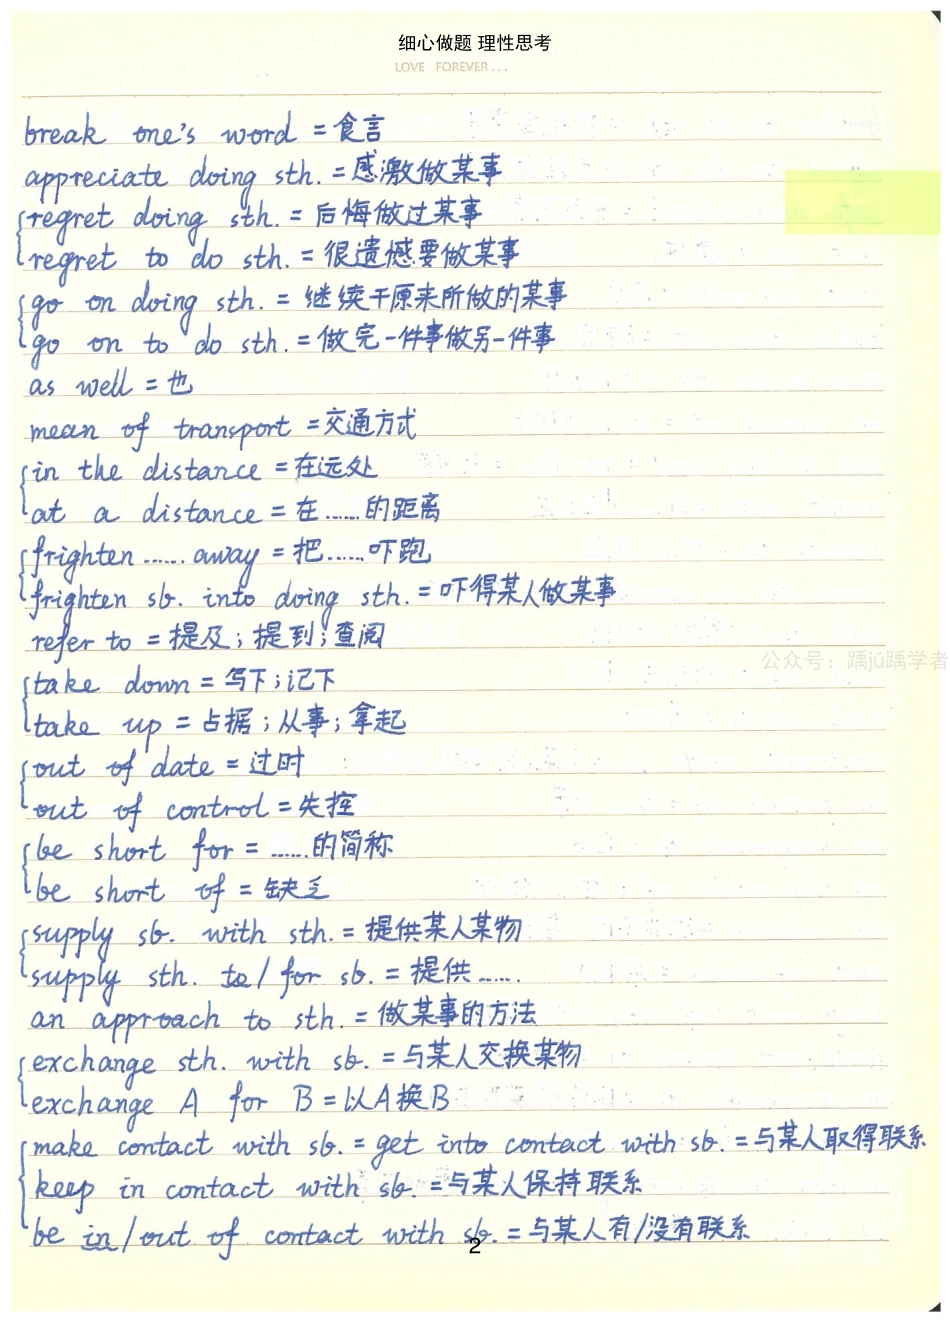 细心做题 理性思考
LOVE FOREVER...
break one's word = 食言
appreciate doing sth. = 感激做某事
regret doing sth. = 后悔做过某事
regret to do sth. = 很遗憾要做某事
go on doing sth. = 继续干原来所做的某事
go on to do sth. = 做完一件事做另一件事
as well = 也
mean of transport = 交通方式
in the distance = 在远处
at a distance = 在......的距离
frighten ...... away = 把......吓跑
frighten sb. into doing sth. = 吓得某人做某事
refer to = 提及；提到；查阅
take down = 写下；记下
take up = 占据；从事；拿起
out of date = 过时
out of control = 失控
be short for = ......的简称
be short of = 缺乏
supply sb. with sth. = 提供某人某物
supply sth. to / for sb. = 提供......
公众号：踽jǔ踽学者
an approach to sth. = 做某事的方法
exchange sth. with sb. = 与某人交换某物
exchange A for B = 以A换B
make contact with sb. = get into contact with sb. = 与某人取得联系
keep in contact with sb. = 与某人保持联系
be in / out of contact with sb. = 与某人有/没有联系
2